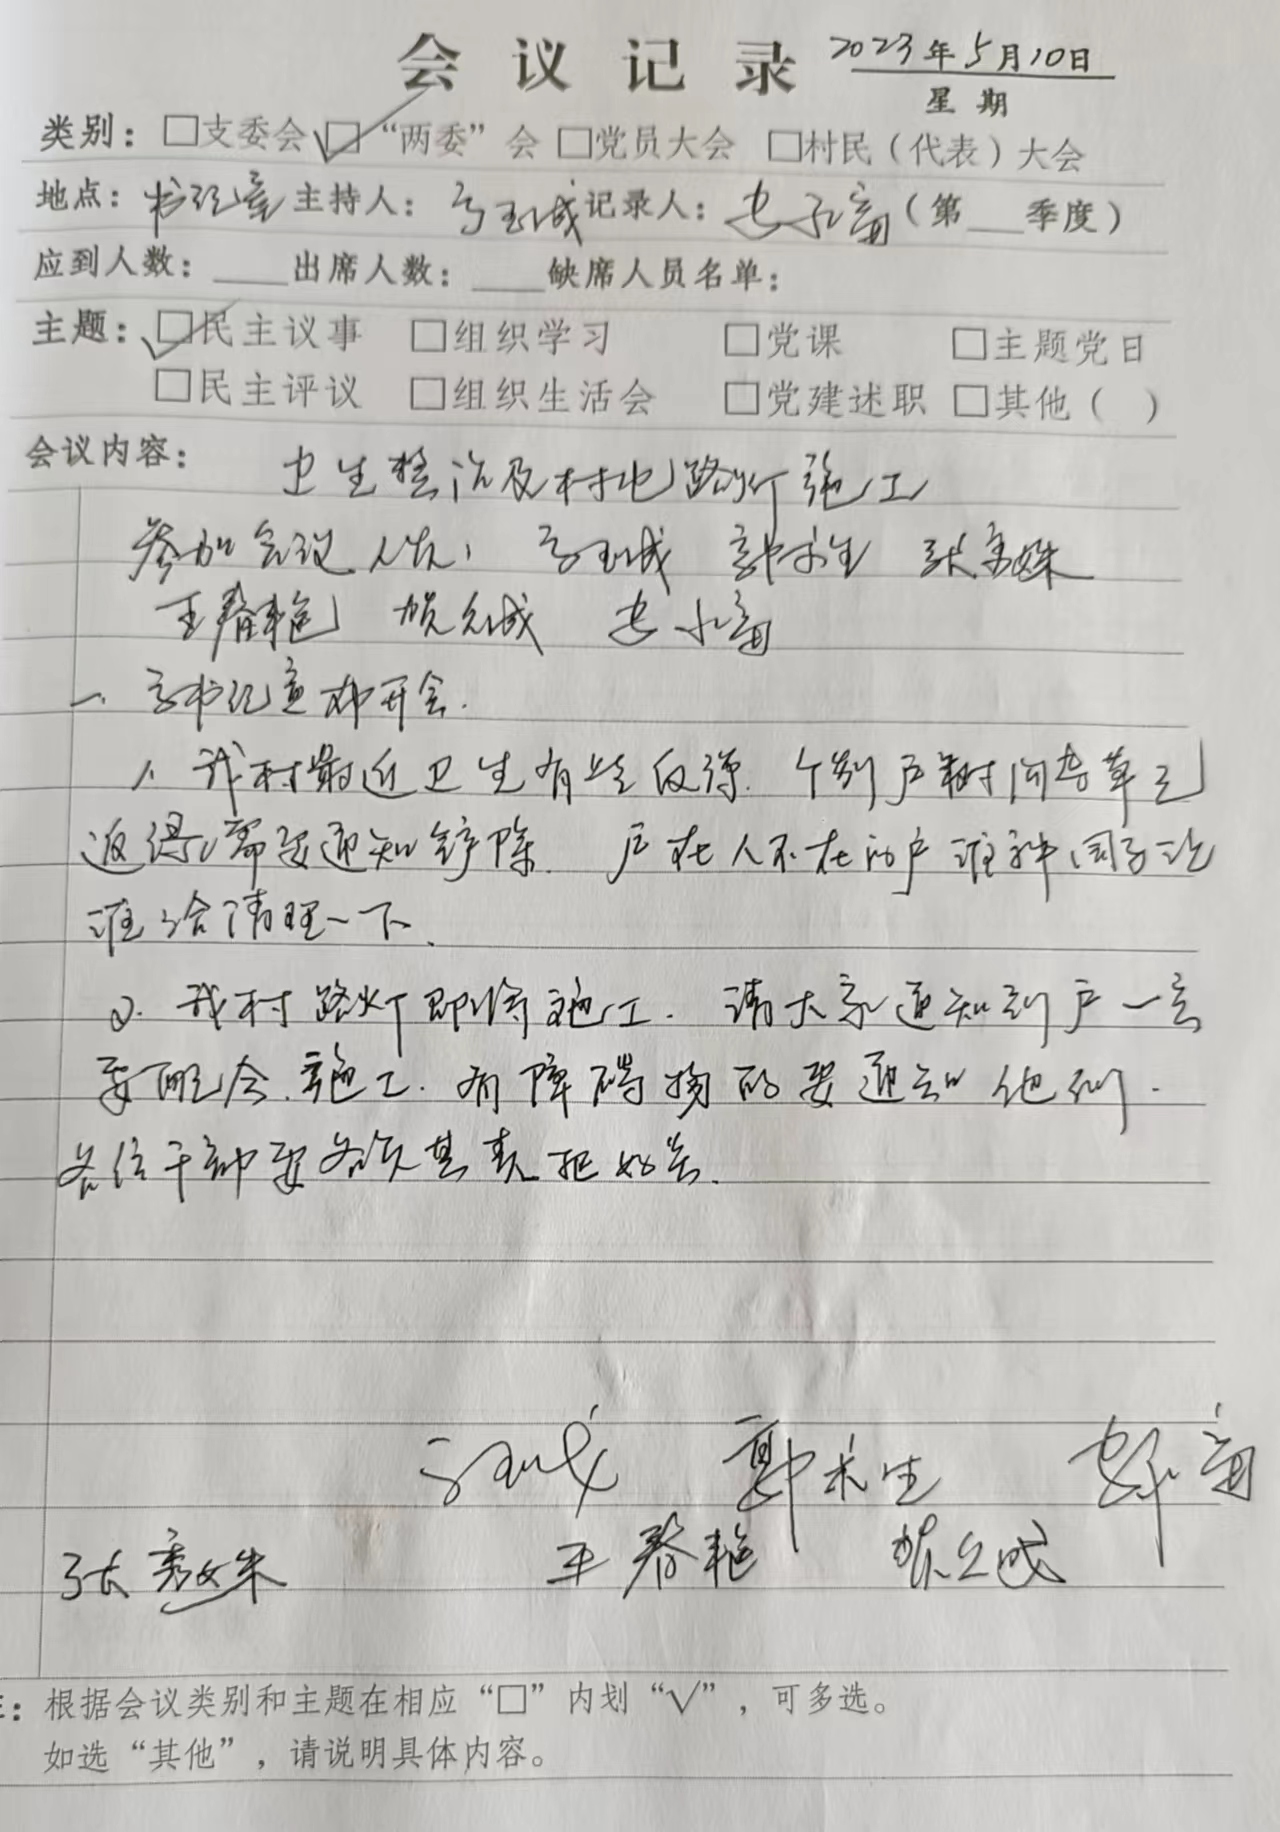 会议记录 2023年5月10日
星期
类别：□支委会 ☑“两委”会 □党员大会 □村民（代表）大会
地点：书记室 主持人：玉成 记录人：（第___季度）
应到人数：____出席人数：____缺席人员名单：
主题：☑民主议事 □组织学习 □党课 □主题党日
□民主评议 □组织生活会 □党建述职 □其他（ ）
会议内容：卫生整治及村屯路灯施工
参加会议人员：玉成 郭术生 张秀姝
王春艳 贺立成
一、书记宣布开会.
1、我村附近卫生有些反弹.个别户树间杂草已
返绿,需要通知铲除.户在人不在的户谁种园子让
谁给清理一下.
2.我村路灯即将施工.请大家通知到户一定
要配合.施工.有障碍物的要通知他们.
各位干部要各负其责把好关.
郭术生
张秀姝 王春艳 贺立成
：根据会议类别和主题在相应“□”内划“√”，可多选。
如选“其他”，请说明具体内容。